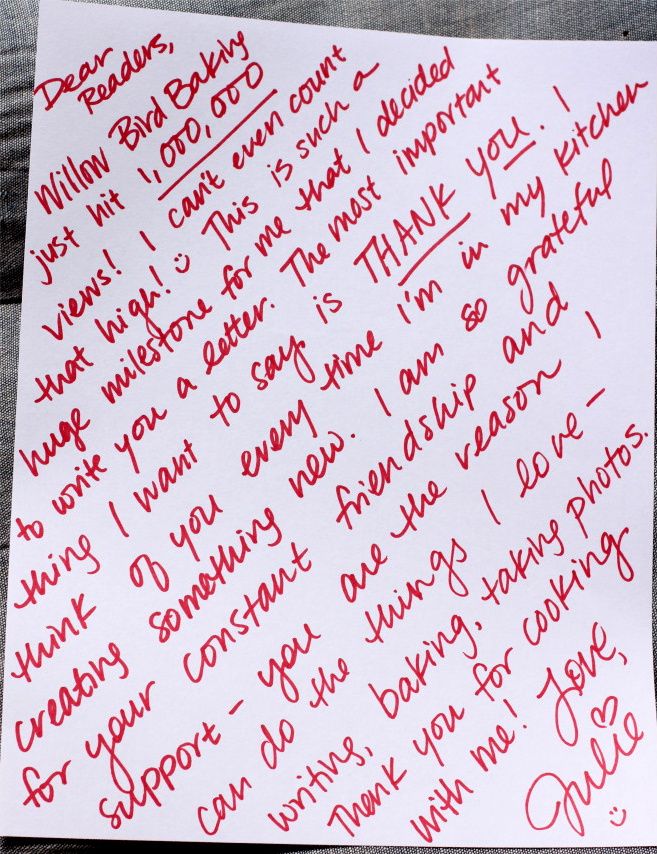 Dear
Readers,
Willow Bird Baking
just hit 1,000,000
views! I can't even count
that high! :) This is such a
huge milestone for me that I decided
to write you a letter. The most important
thing I want to say is THANK YOU. I
think of you every time I'm in my kitchen
creating something new. I am so grateful
for your constant friendship and
support - you are the reason I
can do the things I love -
writing, baking, taking photos.
Thank you for cooking
with me! Love,
♡
Julie
:)